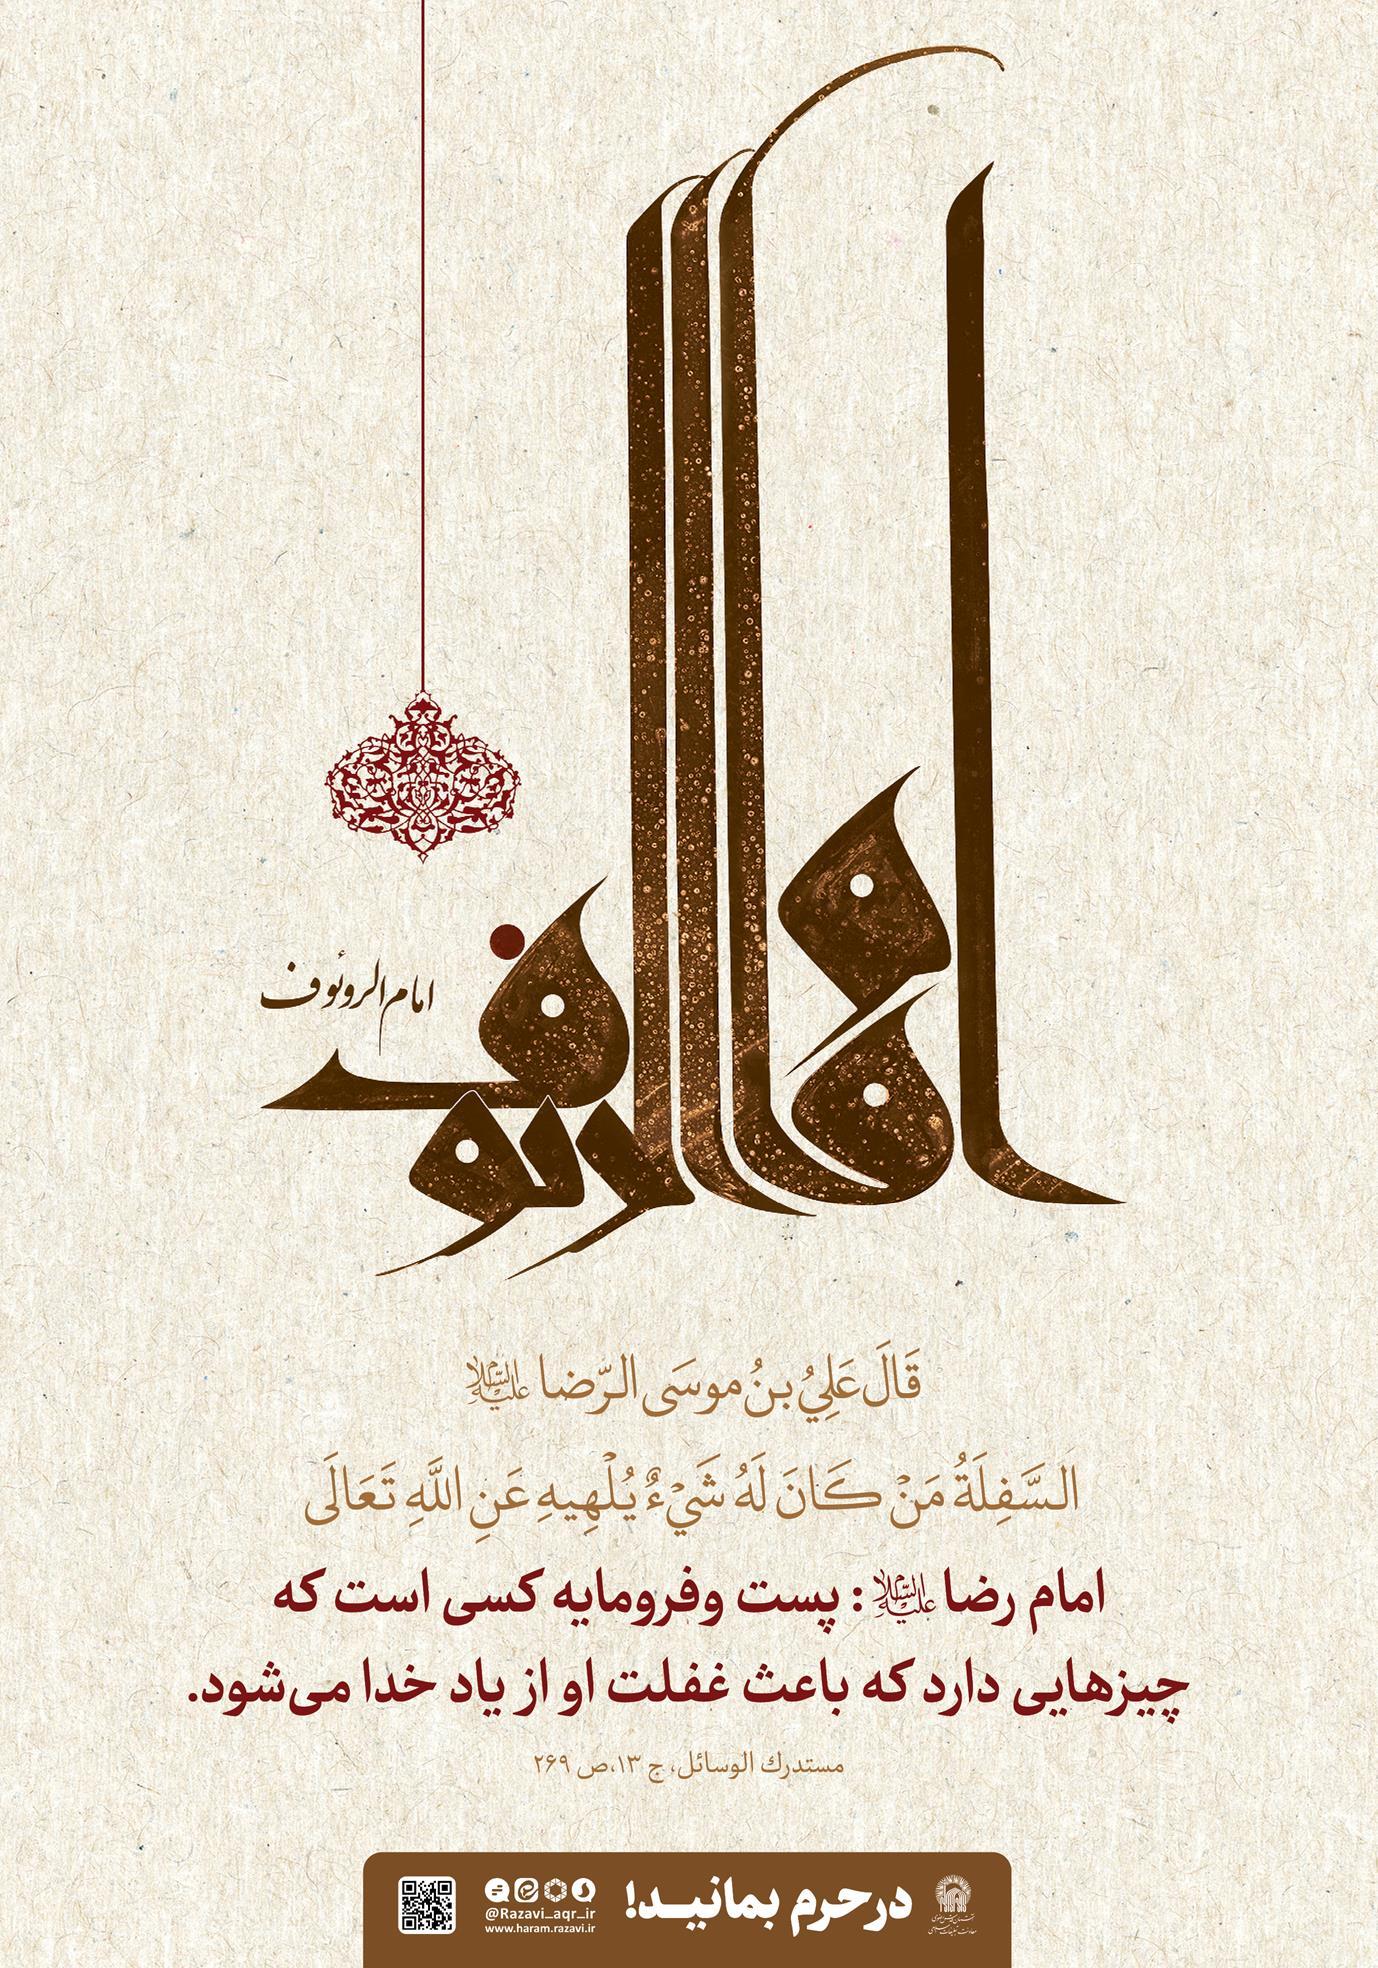 امام الرئوف
امام الروئوف
قَالَ عَلِيُ بنُ موسَى الرّضا علیه السلام
السَّفِلَةُ مَنْ كَانَ لَهُ شَيْءٌ يُلْهِيهِ عَنِ اللَّهِ تَعَالَى
امام رضا علیه السلام : پست وفرومایه کسی است که
چیزهایی دارد که باعث غفلت او از یاد خدا می‌شود.
مستدرك الوسائل، ج ۱۳،ص ۲۶۹
درحرم بمانید!
@Razavi_aqr_ir
www.haram.razavi.ir